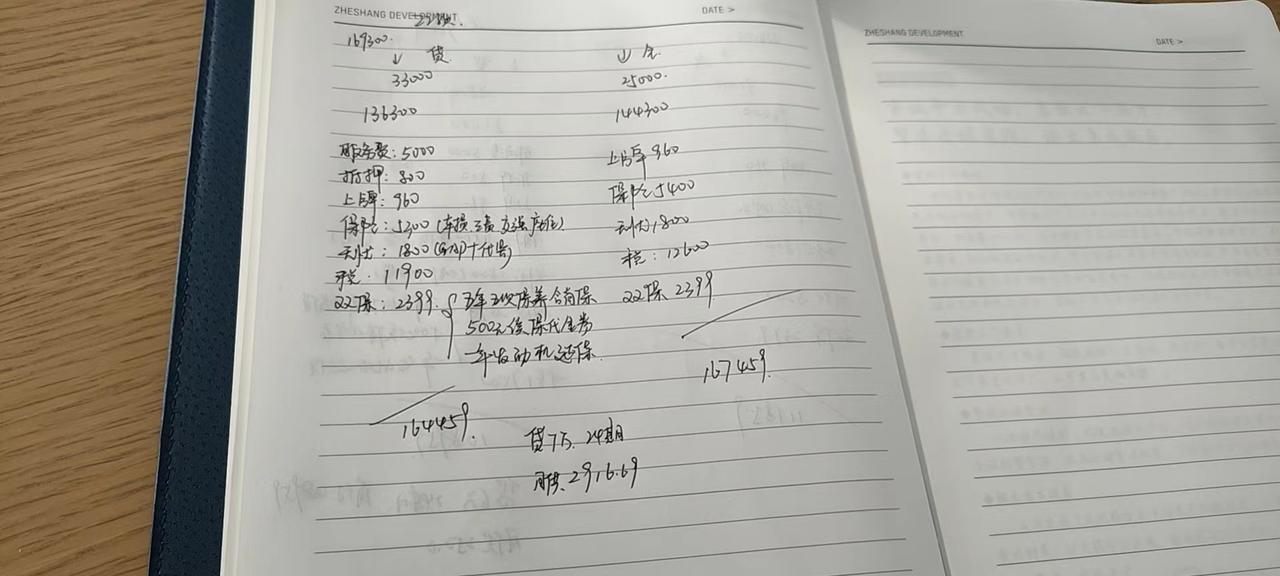 ZHESHANG DEVELOPMENT DATE >
169300.
↓ 贷 ↓ 全
33000 25000.
136300 144300
服务费:5000 上牌 960
抵押:800 保险 5400
上牌:960 1800
保险:5300 (车损 三责 交强 座位) 税:12600
1800 (GAP+代步) 22保 2399
税. 11900
22保:2399. 五年五次保养 含首保
500元保代金券
一年发动机延保.
164459. 167459.
贷7万. 24期
月供. 2916.69
ZHESHANG DEVELOPMENT DATE >